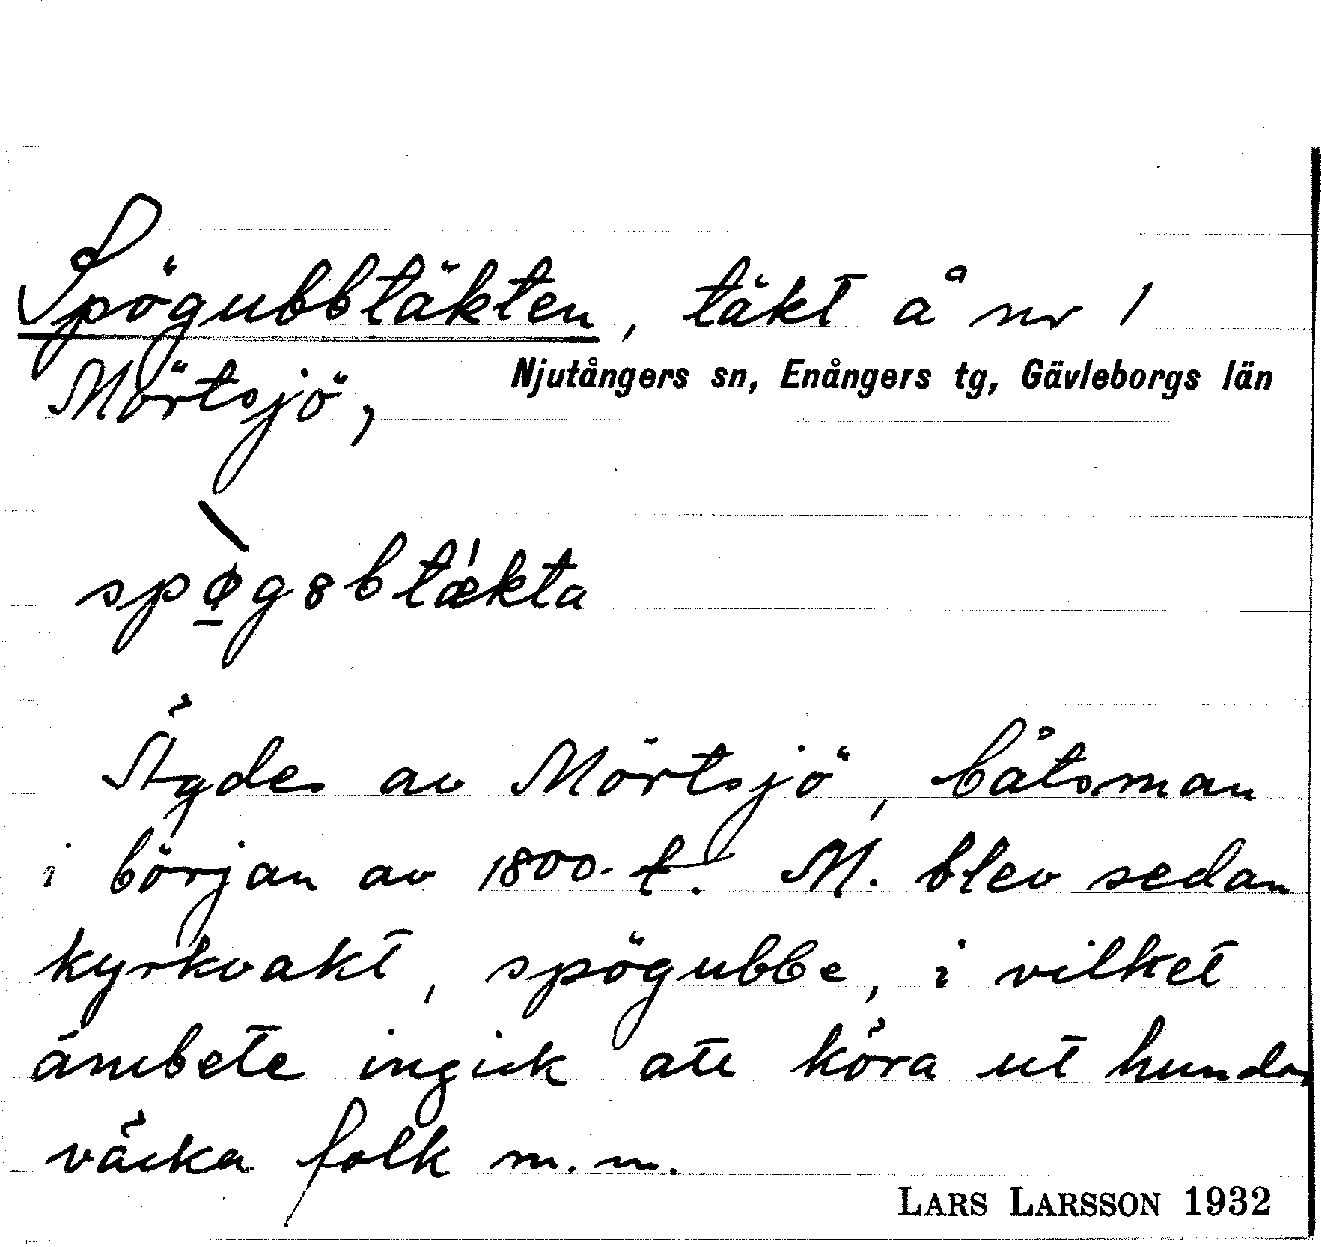 Spögubbtäkten, täkt å nr 1
Mörtsjö,
Njutångers sn, Enångers tg, Gävleborgs län
spø̱̀g8btǽkta
Ägdes av Mörtsjö, båtsman
i början av 1800-t. M. blev sedan
kyrkvakt, spögubbe, i vilket
ämbete ingick att köra ut hundar,
väcka folk m.m.
LARS LARSSON 1932